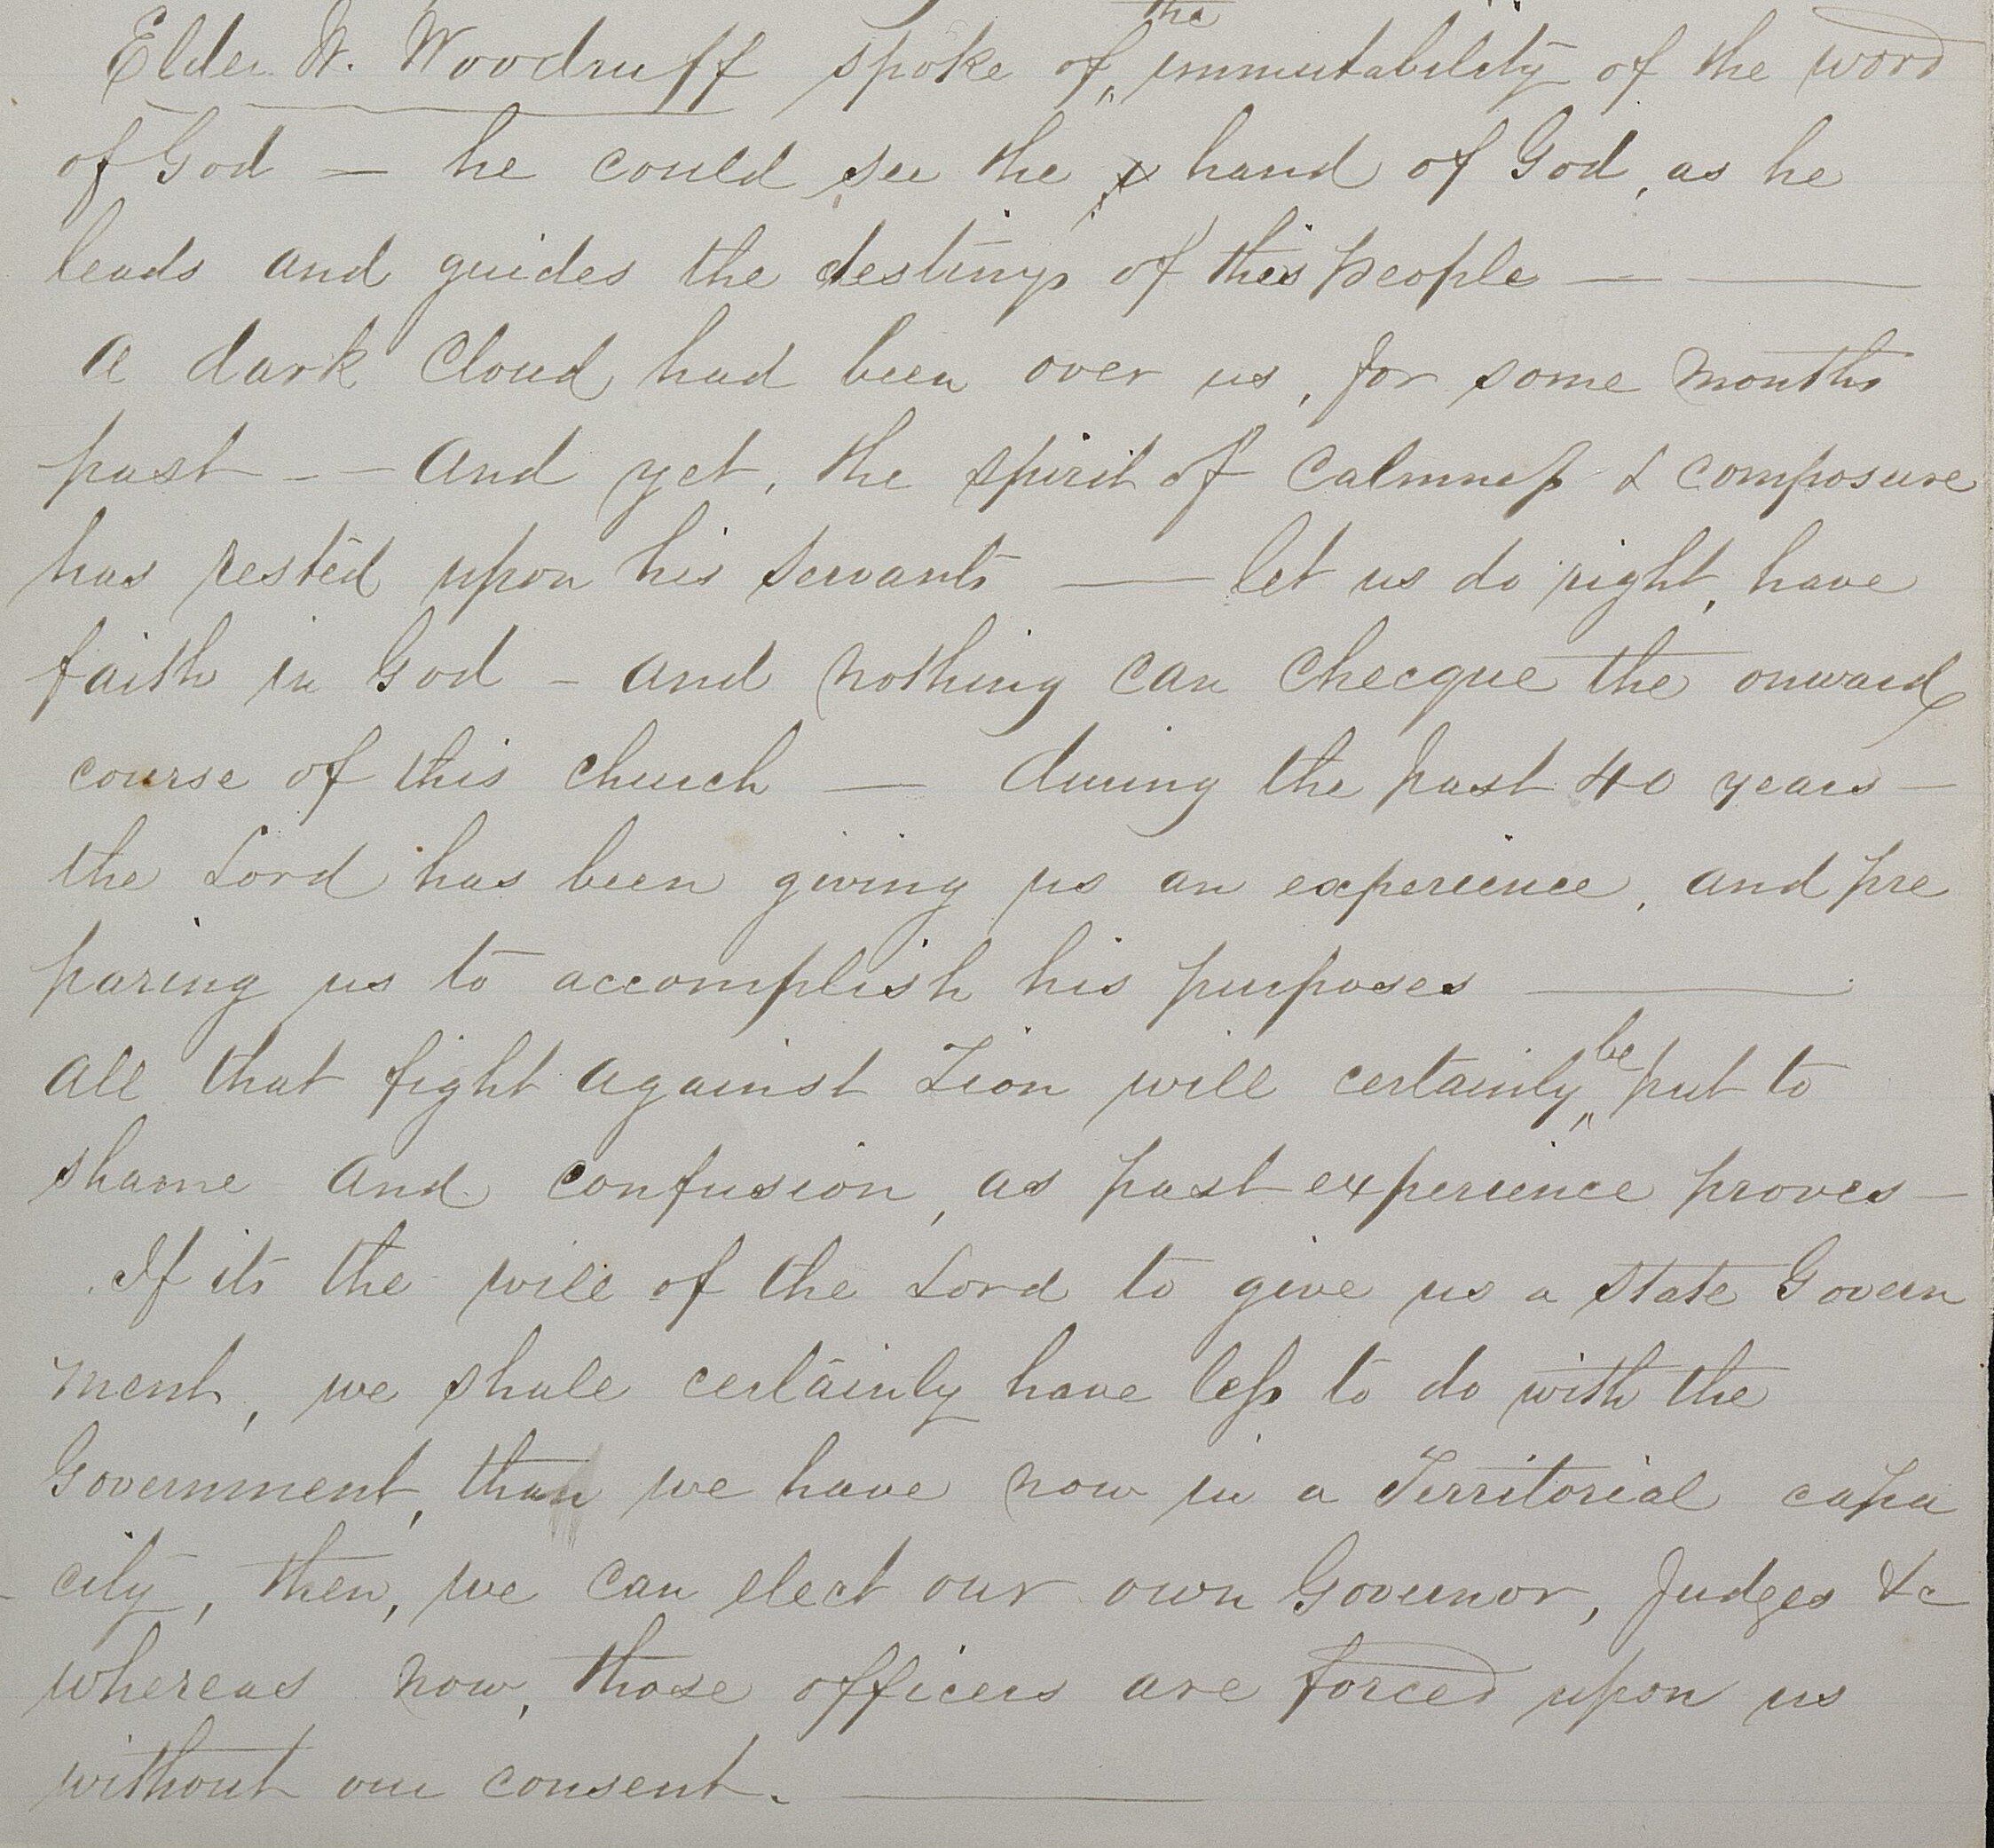 Elder W. Woodruff spoke of the immutability of the word
of God — he could see the hand of God, as he
leads and guides the destiny of this people — —
a dark cloud had been over us, for some months
past — — and yet, the spirit of calmness & composure
has rested upon his servants — let us do right, have
faith in God — and nothing can checque the onward
course of this church — during the past 40 years —
the Lord has been giving us an experience, and pre
paring us to accomplish his purposes —
all that fight against Zion will certainly be put to
shame and confusion, as past experience proves —
If its the will of the Lord to give us a State Govern
ment, we shall certainly have less to do with the
Government, than we have now in a Territorial capa
- city, then, we can elect our own Governor, Judges &c
whereas now, those officers are forced upon us
without our consent. —